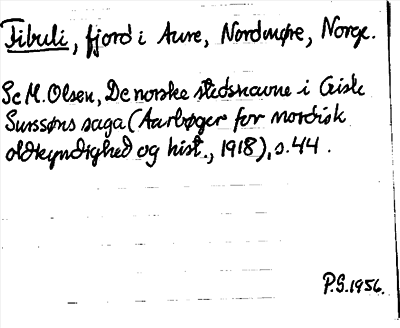 Fibuli, fjord i Aure, Nordmøre, Norge.
Se M. Olsen, De norske stedsnavne i Gisle
Surssøns saga (Aarbøger for nordisk
oldkyndighed og hist., 1918), s. 44.
P.S. 1956.